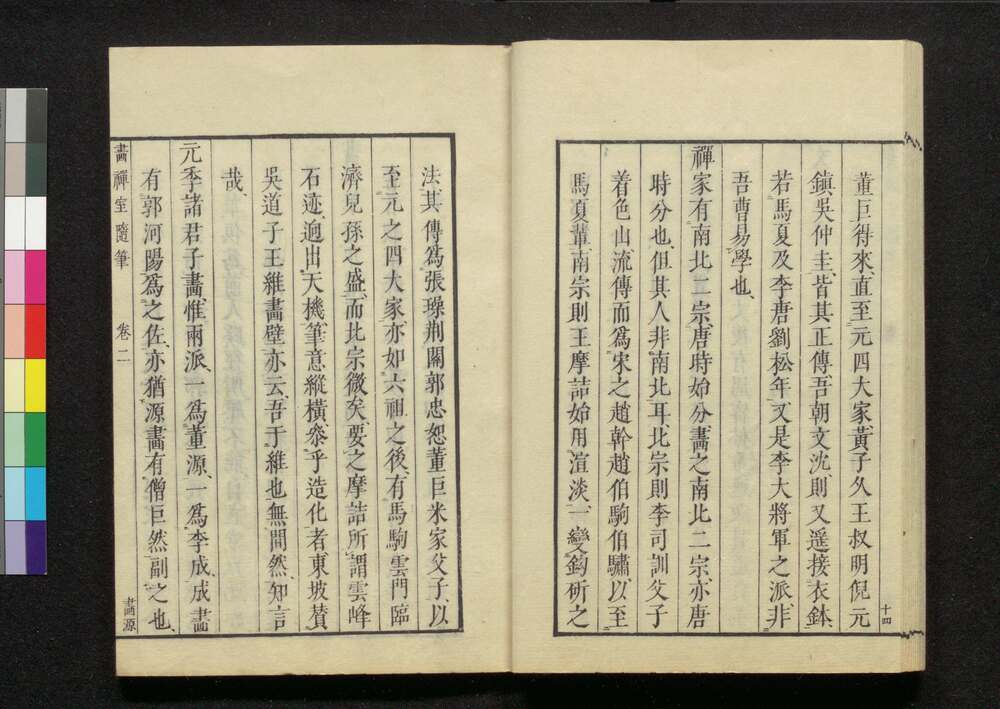 董巨得來、直至元四大家、黃子久、王叔明、倪元
鎮、吳仲圭、皆其正傳、吾朝文沈則又遙接衣鉢、
若馬夏及李唐劉松年、又是李大將軍之派、非
吾曹易學也、
禪家有南北二宗、唐時始分、畫之南北二宗、亦唐
時分也、但其人非南北耳、北宗則李司訓父子
着色山、流傳而爲宋之趙幹趙伯駒伯驌、以至
馬夏輩、南宗則王摩詰始用渲淡、一變鈎斫之
十四
法、其傳爲張璪荆關郭忠恕董巨米家父子、以
至元之四大家、亦如六祖之後、有馬駒雲門臨
濟兒孫之盛、而北宗微矣、要之摩詰所謂雲峰
石迹、迥出天機、筆意縱橫、參乎造化者、東坡贊
吳道子王維畫壁亦云、吾于維也無間然、知言
哉、
元季諸君子畫、惟兩派、一爲董源、一爲李成、成畫
有郭河陽爲之佐、亦猶源畫有僧巨然副之也、
畫禪室隨筆 卷二
畫源